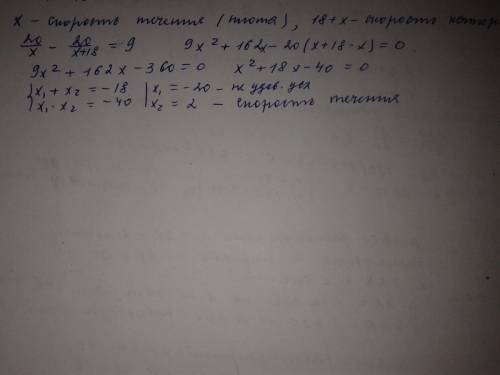 x - скорость течения (плота), 18+x - скорость катер
20/x - 20/(x+18) = 9    9x² + 162x - 20(x+18-x) = 0
9x² + 162x - 360 = 0    x² + 18x - 40 = 0
{ x₁ + x₂ = -18 | x₁ = -20 - не удов. усл
x₁ · x₂ = -40 | x₂ = 2 - скорость течения